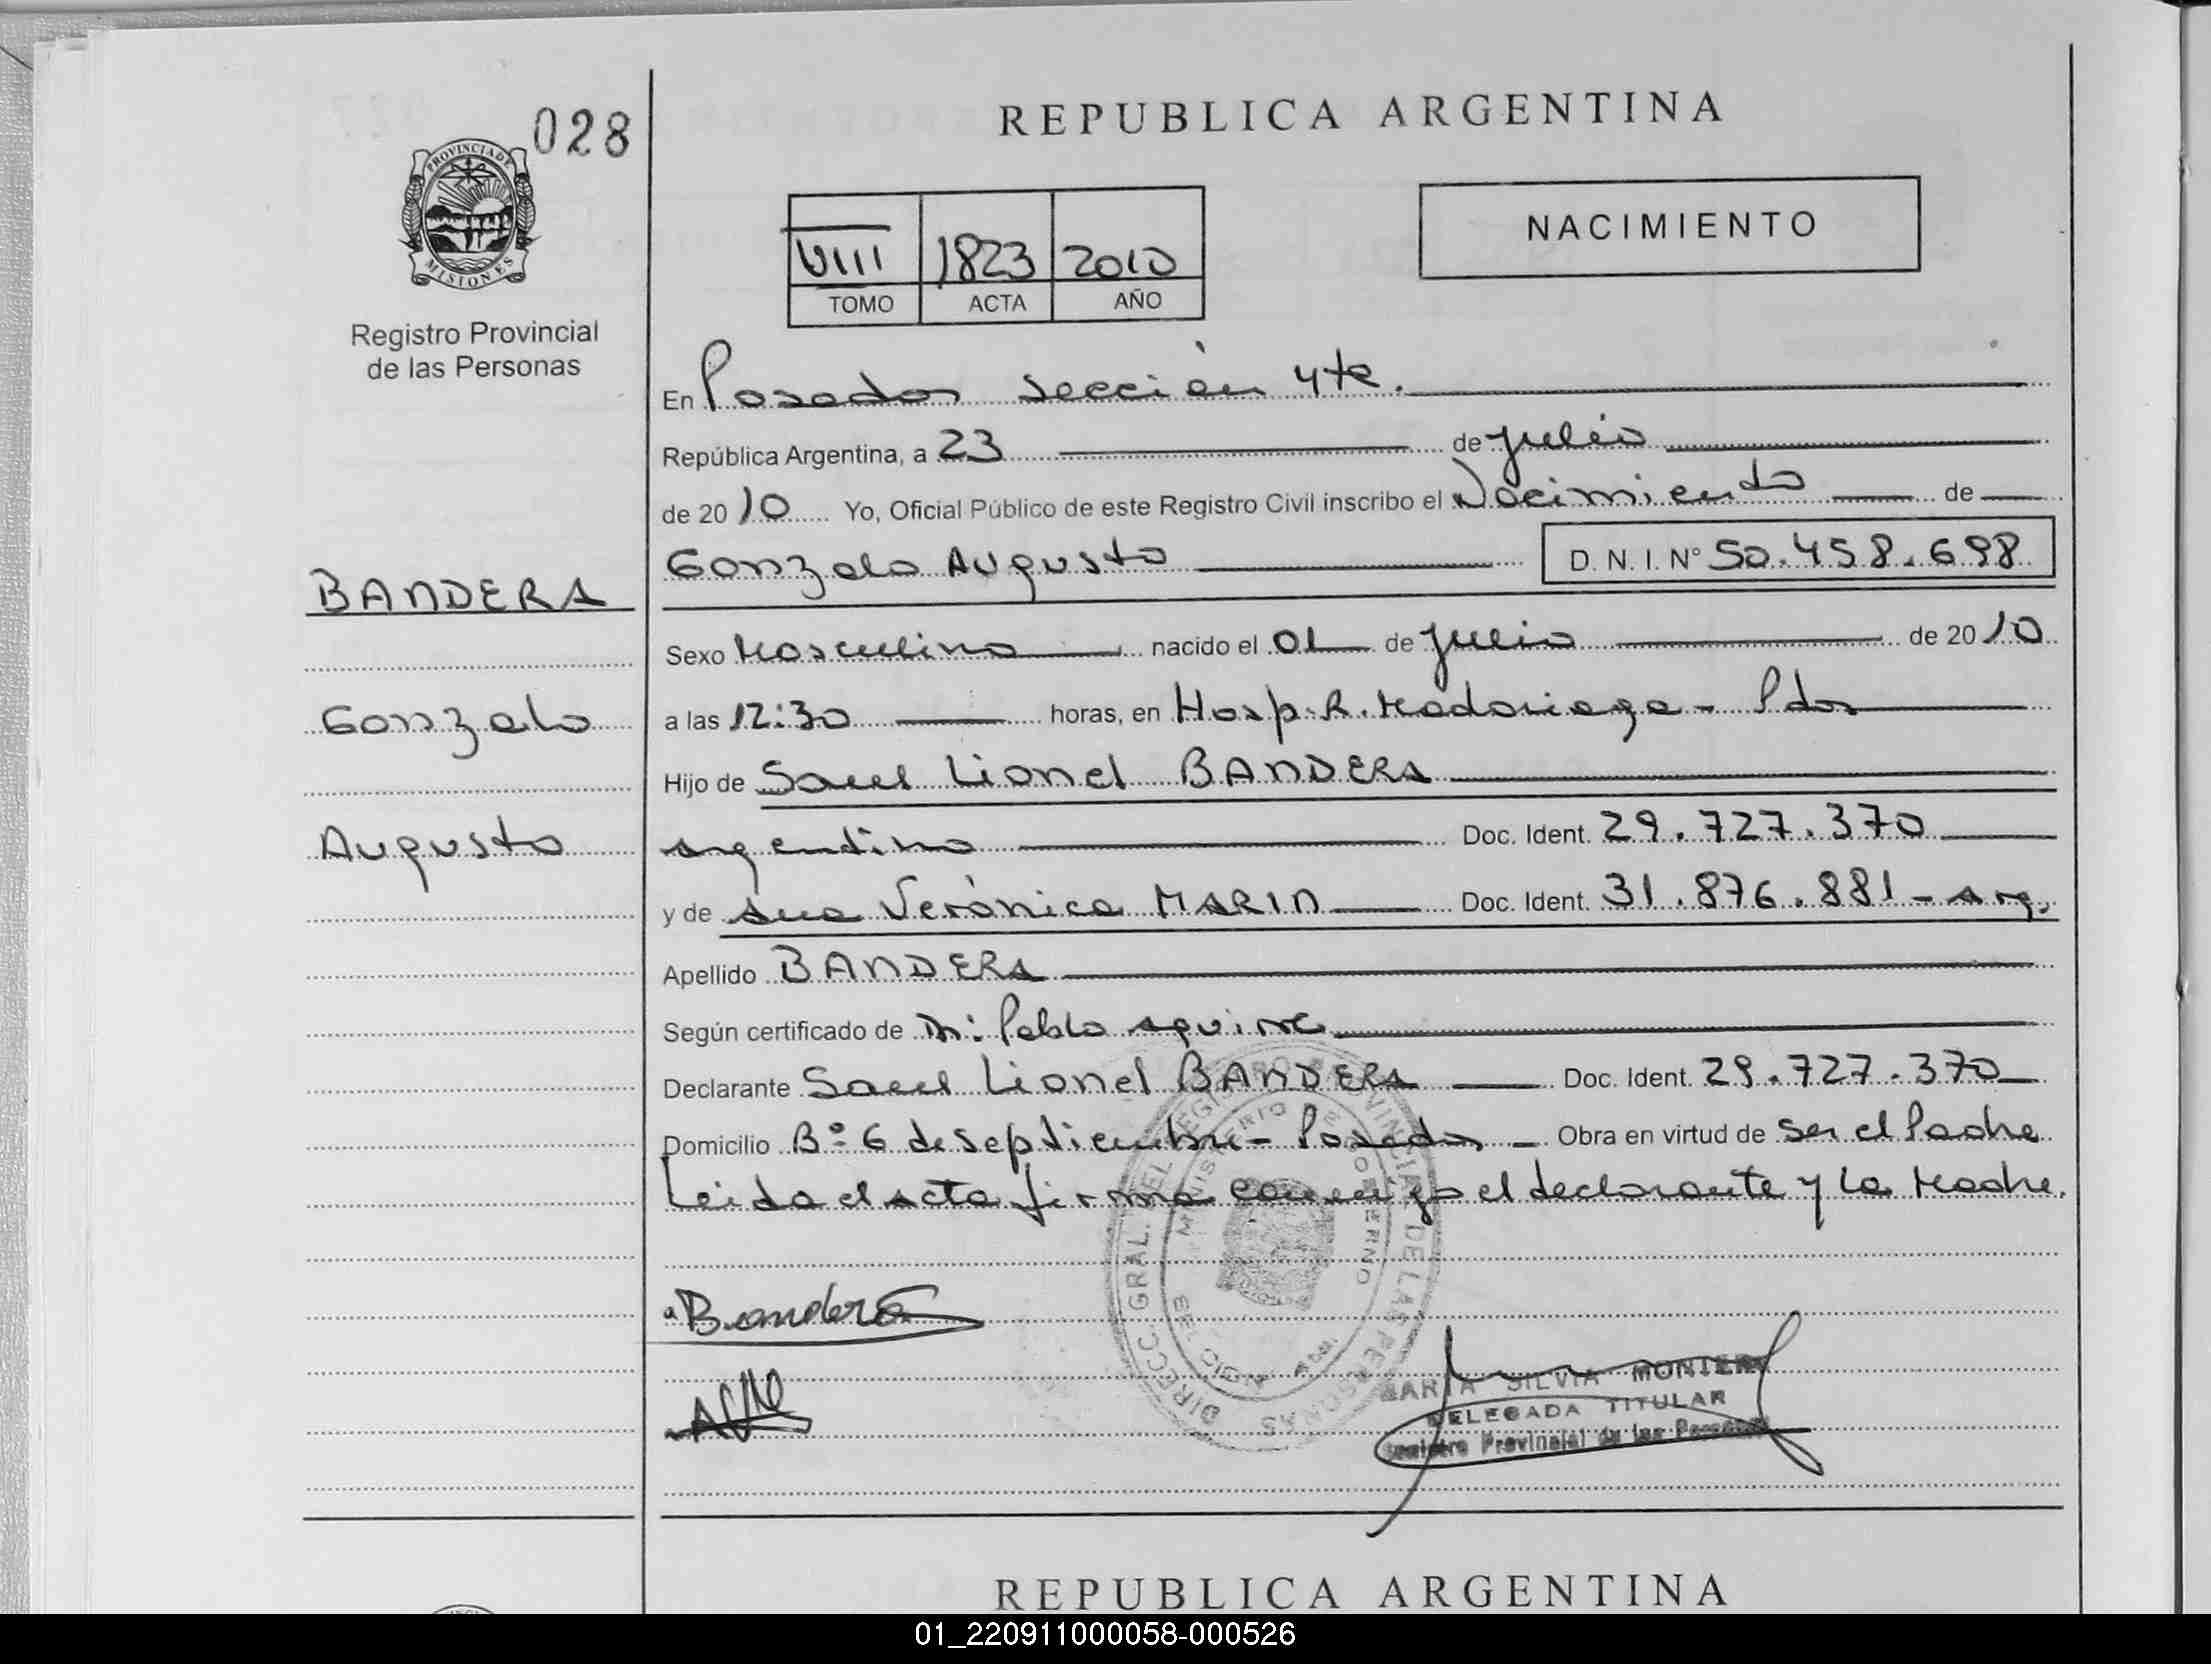 028
PROVINCIA DE
MISIONES
Registro Provincial
de las Personas
BANDERA
Gonzalo
Augusto
REPUBLICA ARGENTINA
VIII 1823 2010
TOMO ACTA AÑO
NACIMIENTO
En Posadas sección 4ta.
República Argentina, a 23 de julio
de 2010 Yo, Oficial Público de este Registro Civil inscribo el Nacimiento de
Gonzalo Augusto D. N. I. N° 50.458.698
Sexo Masculino nacido el 01 de julio de 2010
a las 12:30 horas, en Hosp. R. Madariaga - Pdas
Hijo de Saul Lionel BANDERA
argentino Doc. Ident. 29.727.370
y de Ana Verónica MARIN Doc. Ident. 31.876.881 - Arg.
Apellido BANDERA
Según certificado de Dr: Pablo Aguirre
Declarante Saul Lionel BANDERA Doc. Ident. 29.727.370
Domicilio B° 6 de Septiembre - Posadas Obra en virtud de ser el Padre
Leida el acta firma conmigo el declarante y la Madre.
Bandera
DIRECC. GRAL. DEL REGISTRO PROVINCIAL DE LAS PERSONAS
MINISTERIO DE GOBIERNO
MARIA SILVIA
DELEGADA TITULAR
Registro Provincial de las Personas
REPUBLICA ARGENTINA
01_220911000058-000526